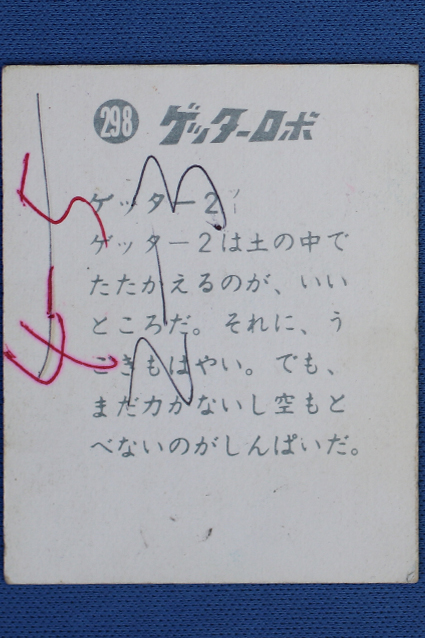 298 ゲッターロボ
ゲッター2
ゲッター2は土の中で
たたかえるのが、いい
ところだ。それに、う
ごきもはやい。でも、
まだ力がないし空もと
べないのがしんぱいだ。